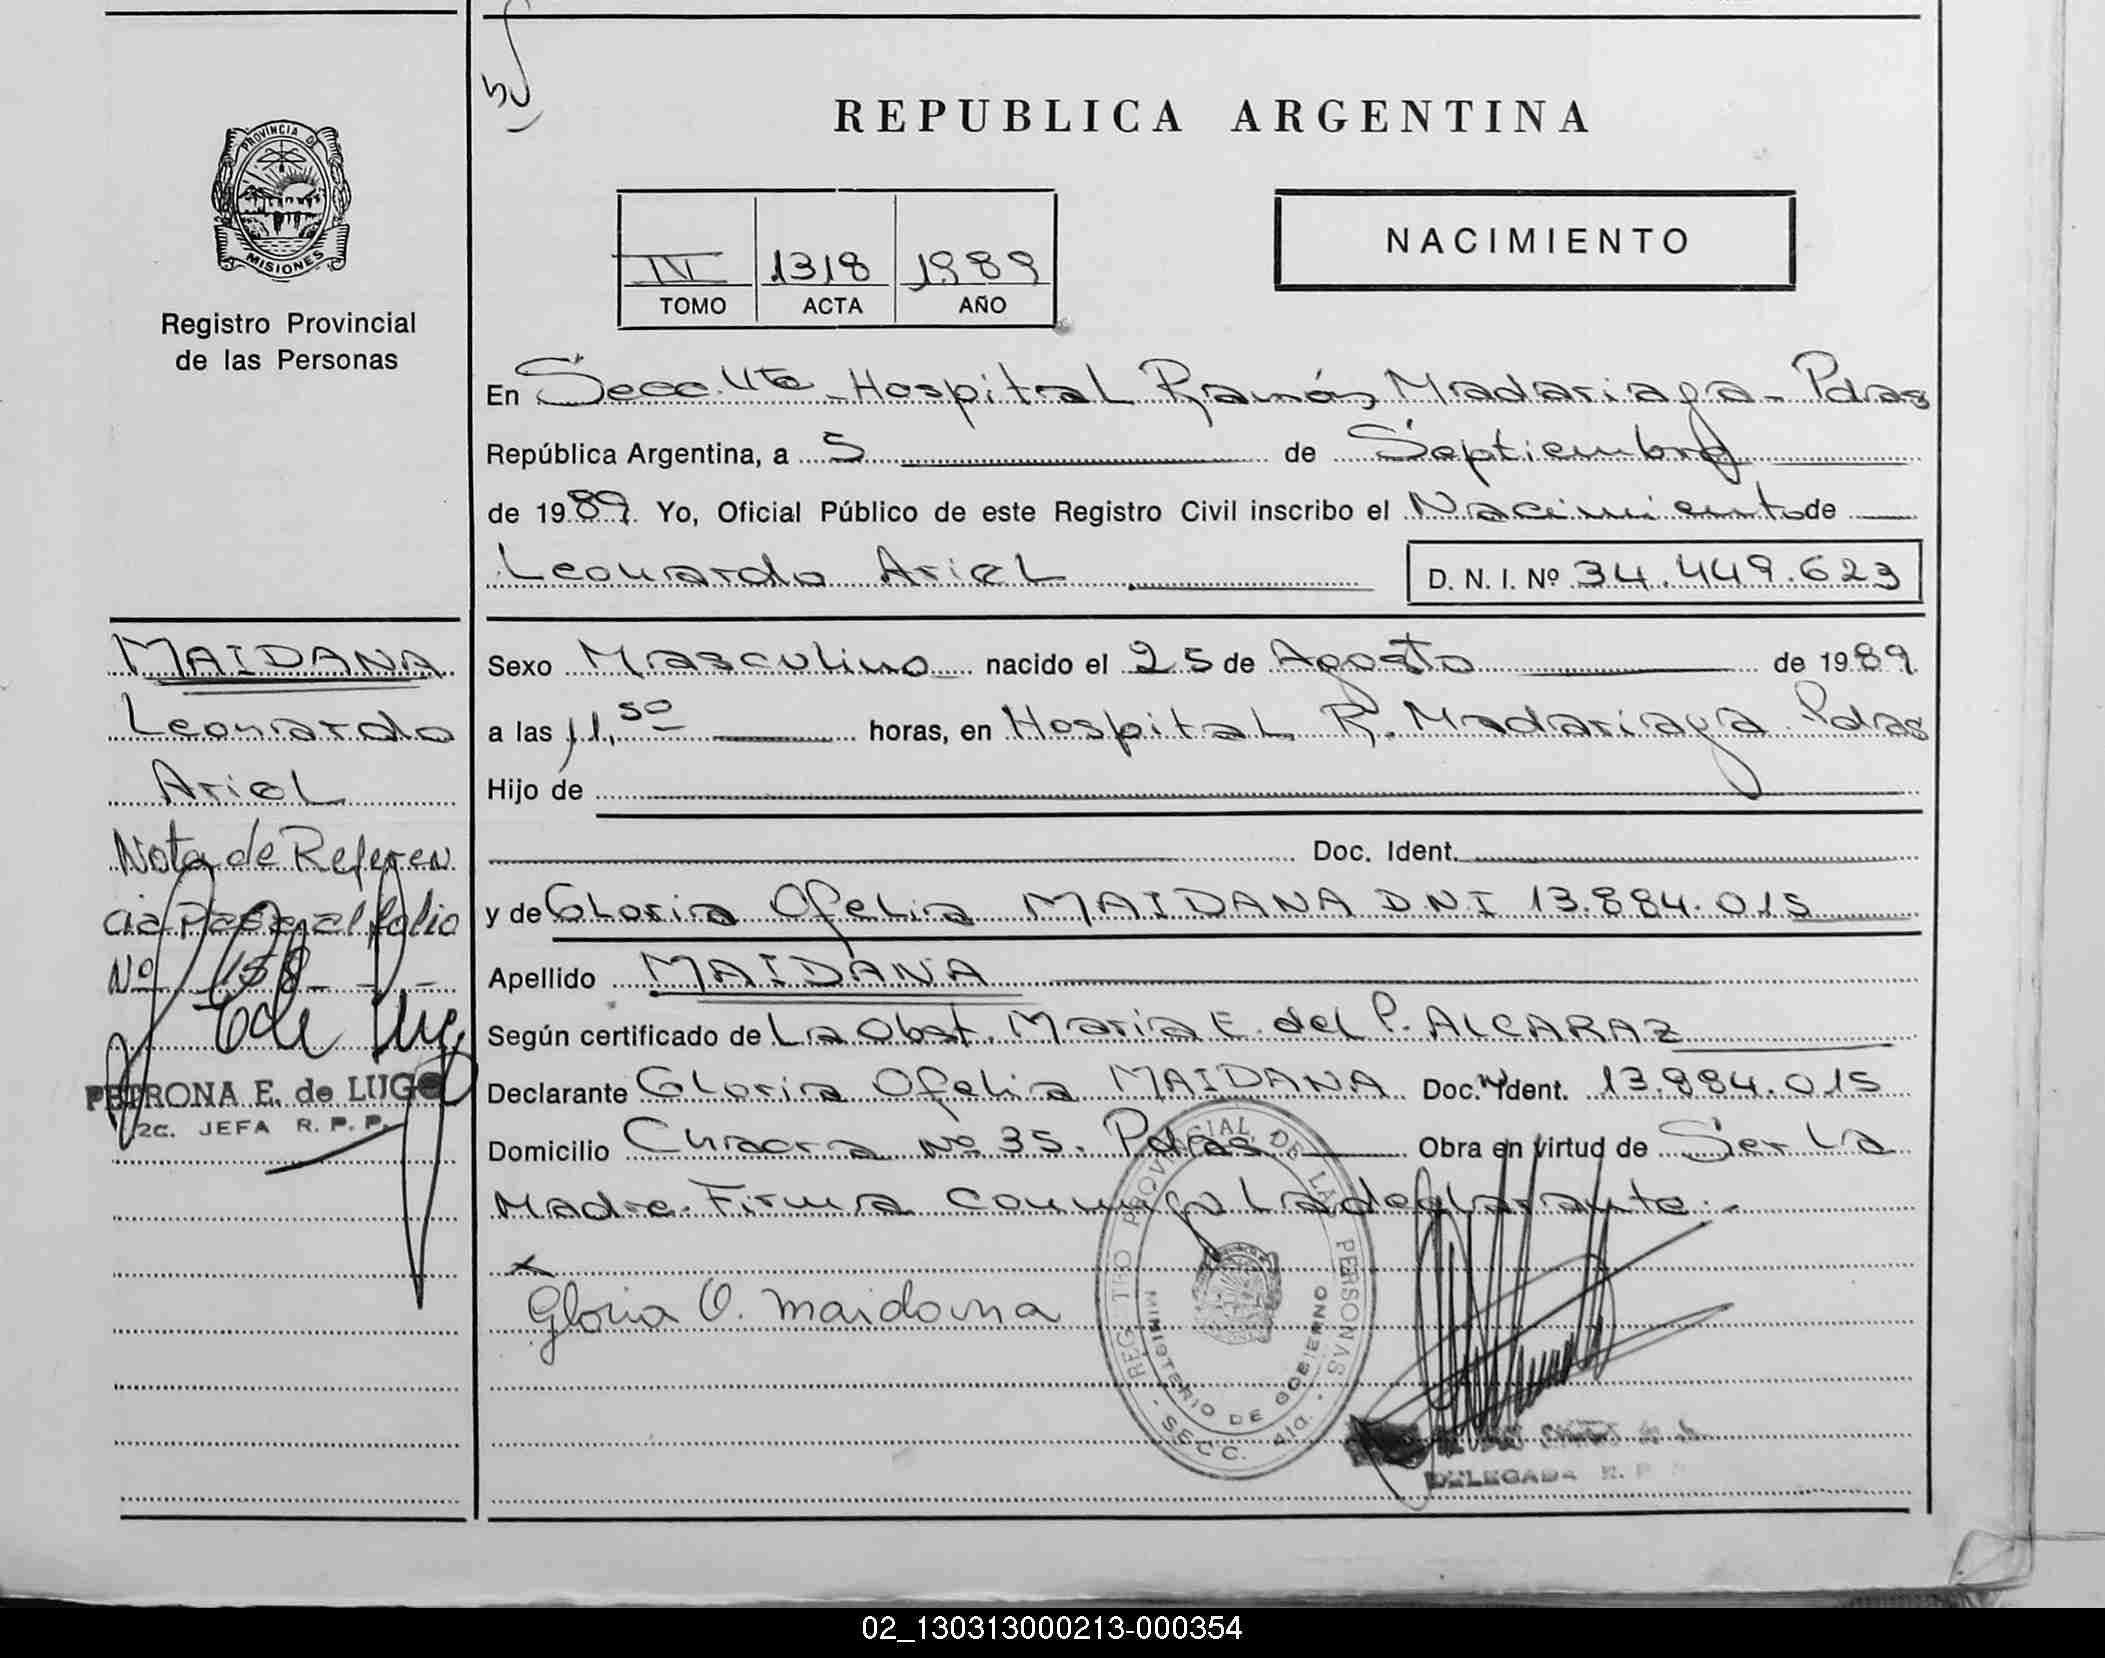 REPUBLICA ARGENTINA
PROVINCIA DE
MISIONES
Registro Provincial
de las Personas
NACIMIENTO
IV 1318 1989
TOMO ACTA AÑO
En Secc. 4ta - Hospital Ramón Madariaga - Pdas
República Argentina, a 5 de Septiembre
de 1989. Yo, Oficial Público de este Registro Civil inscribo el Nacimiento de
Leonardo Ariel D. N. I. Nº 34.449.623
Sexo Masculino nacido el 25 de Agosto de 1989
a las 11,50 horas, en Hospital R. Madariaga Pdas
Hijo de
Doc. Ident.
y de Gloria Ofelia MAIDANA D.N.I 13.884.015
Apellido MAIDANA
Según certificado de La Obst. Maria E. del P. ALCARAZ
Declarante Gloria Ofelia MAIDANA Doc. Ident. 13.884.015
Domicilio Chacra Nº 35. Pdas Obra en virtud de Ser La
Madre. Firma Conmigo La declarante.
x
Gloria O. maidana
REGISTRO PROVINCIAL DE LAS PERSONAS
MINISTERIO DE GOBIERNO
SECC. 4ta.
DELEGADA R. P.
MAIDANA
Leonardo
Ariel
Nota de Referen
cia Pase al folio
Nº 158 -
PETRONA E. de LUGO
2c. JEFA R. P. P.
02_130313000213-000354